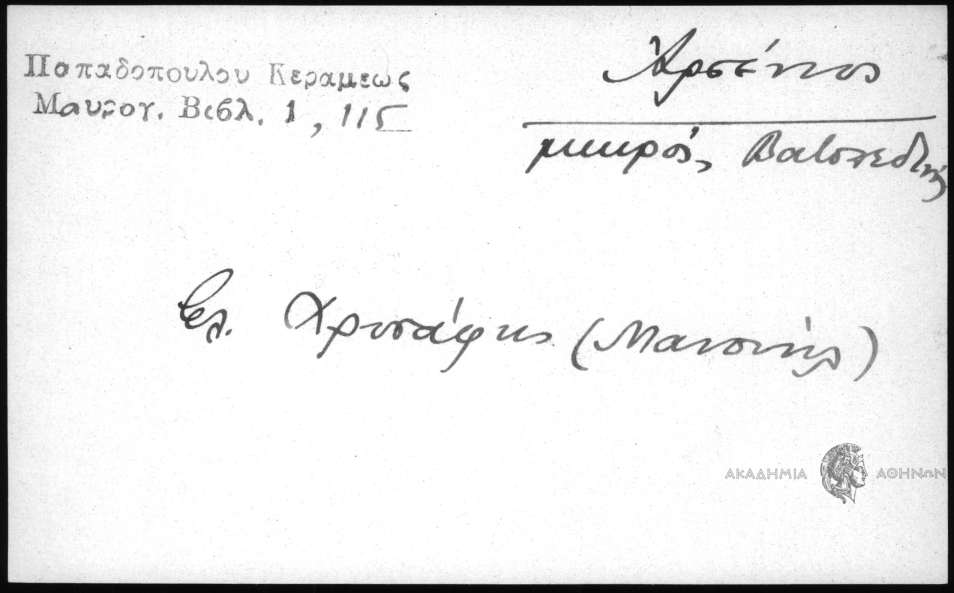 Παπαδοπουλου Κεραμεως
Μαυρογ. Βιβλ. 1, 115
Ἀρσένιος
μικρός, Βατοπεδινός
βλ. Χρυσάφης (Μανουήλ)
ΑΚΑΔΗΜΙΑ ΑΘΗΝΩΝ